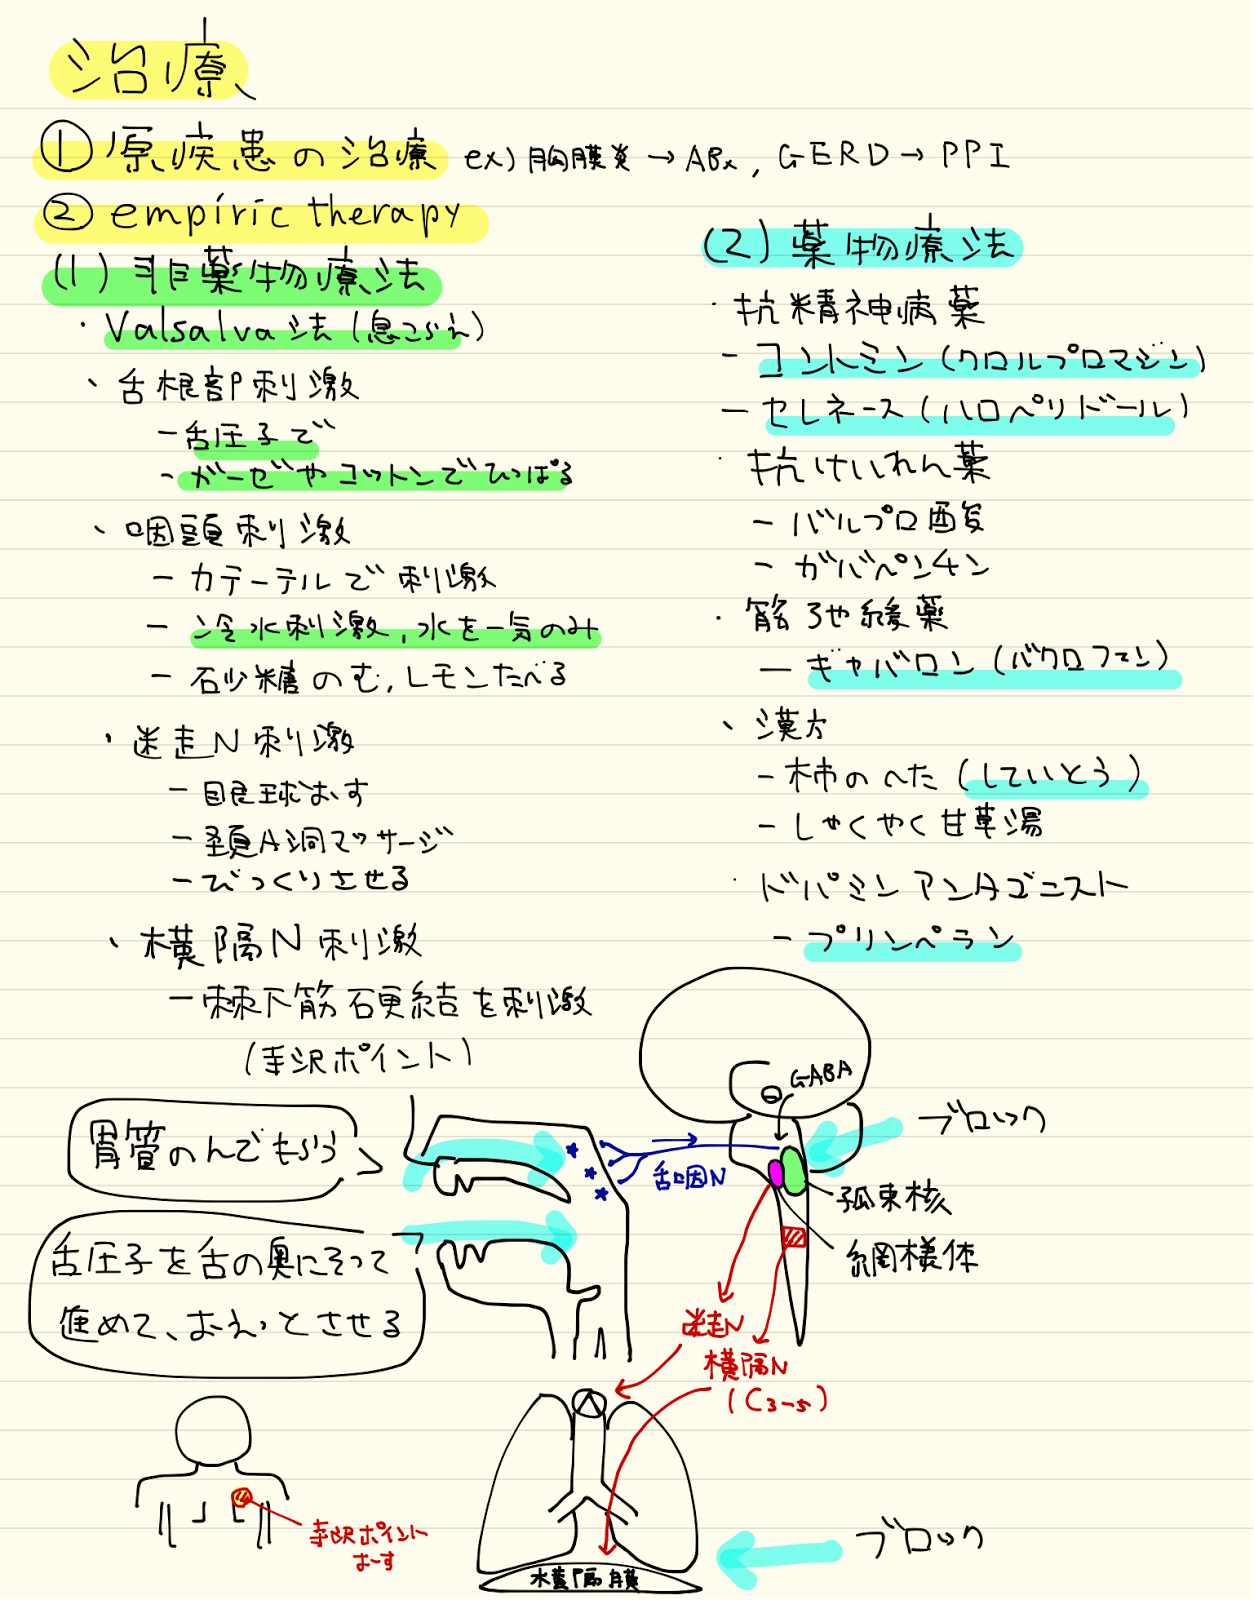 治療
① 原疾患の治療 ex) 胸膜炎→ABx, GERD→PPI
② empiric therapy
(1) 非薬物療法
・Valsalva法 (息こらえ)
・舌根部刺激
- 舌圧子で
- ガーゼやコットンでひっぱる
・咽頭刺激
- カテーテルで刺激
- 冷水刺激, 水を一気のみ
- 砂糖のむ, レモンたべる
・迷走N刺激
- 眼球おす
- 頚A洞マッサージ
- びっくりさせる
・横隔N刺激
- 棘下筋硬結を刺激
(寺沢ポイント)
(2) 薬物療法
・抗精神病薬
- コントミン (クロルプロマジン)
- セレネース (ハロペリドール)
・抗けいれん薬
- バルプロ酸
- ガバペンチン
・筋弛緩薬
- ギャバロン (バクロフェン)
・漢方
- 柿のへた (していとう)
- しゃくやく甘草湯
・ドパミンアンタゴニスト
- プリンペラン
GABA
ブロック
胃管のんでもらう
舌咽N
孤束核
網様体
舌圧子を舌の奥にそって
進めて、おえっとさせる
迷走N
横隔N
(C3-5)
寺沢ポイント
おーす
ブロック
横隔膜